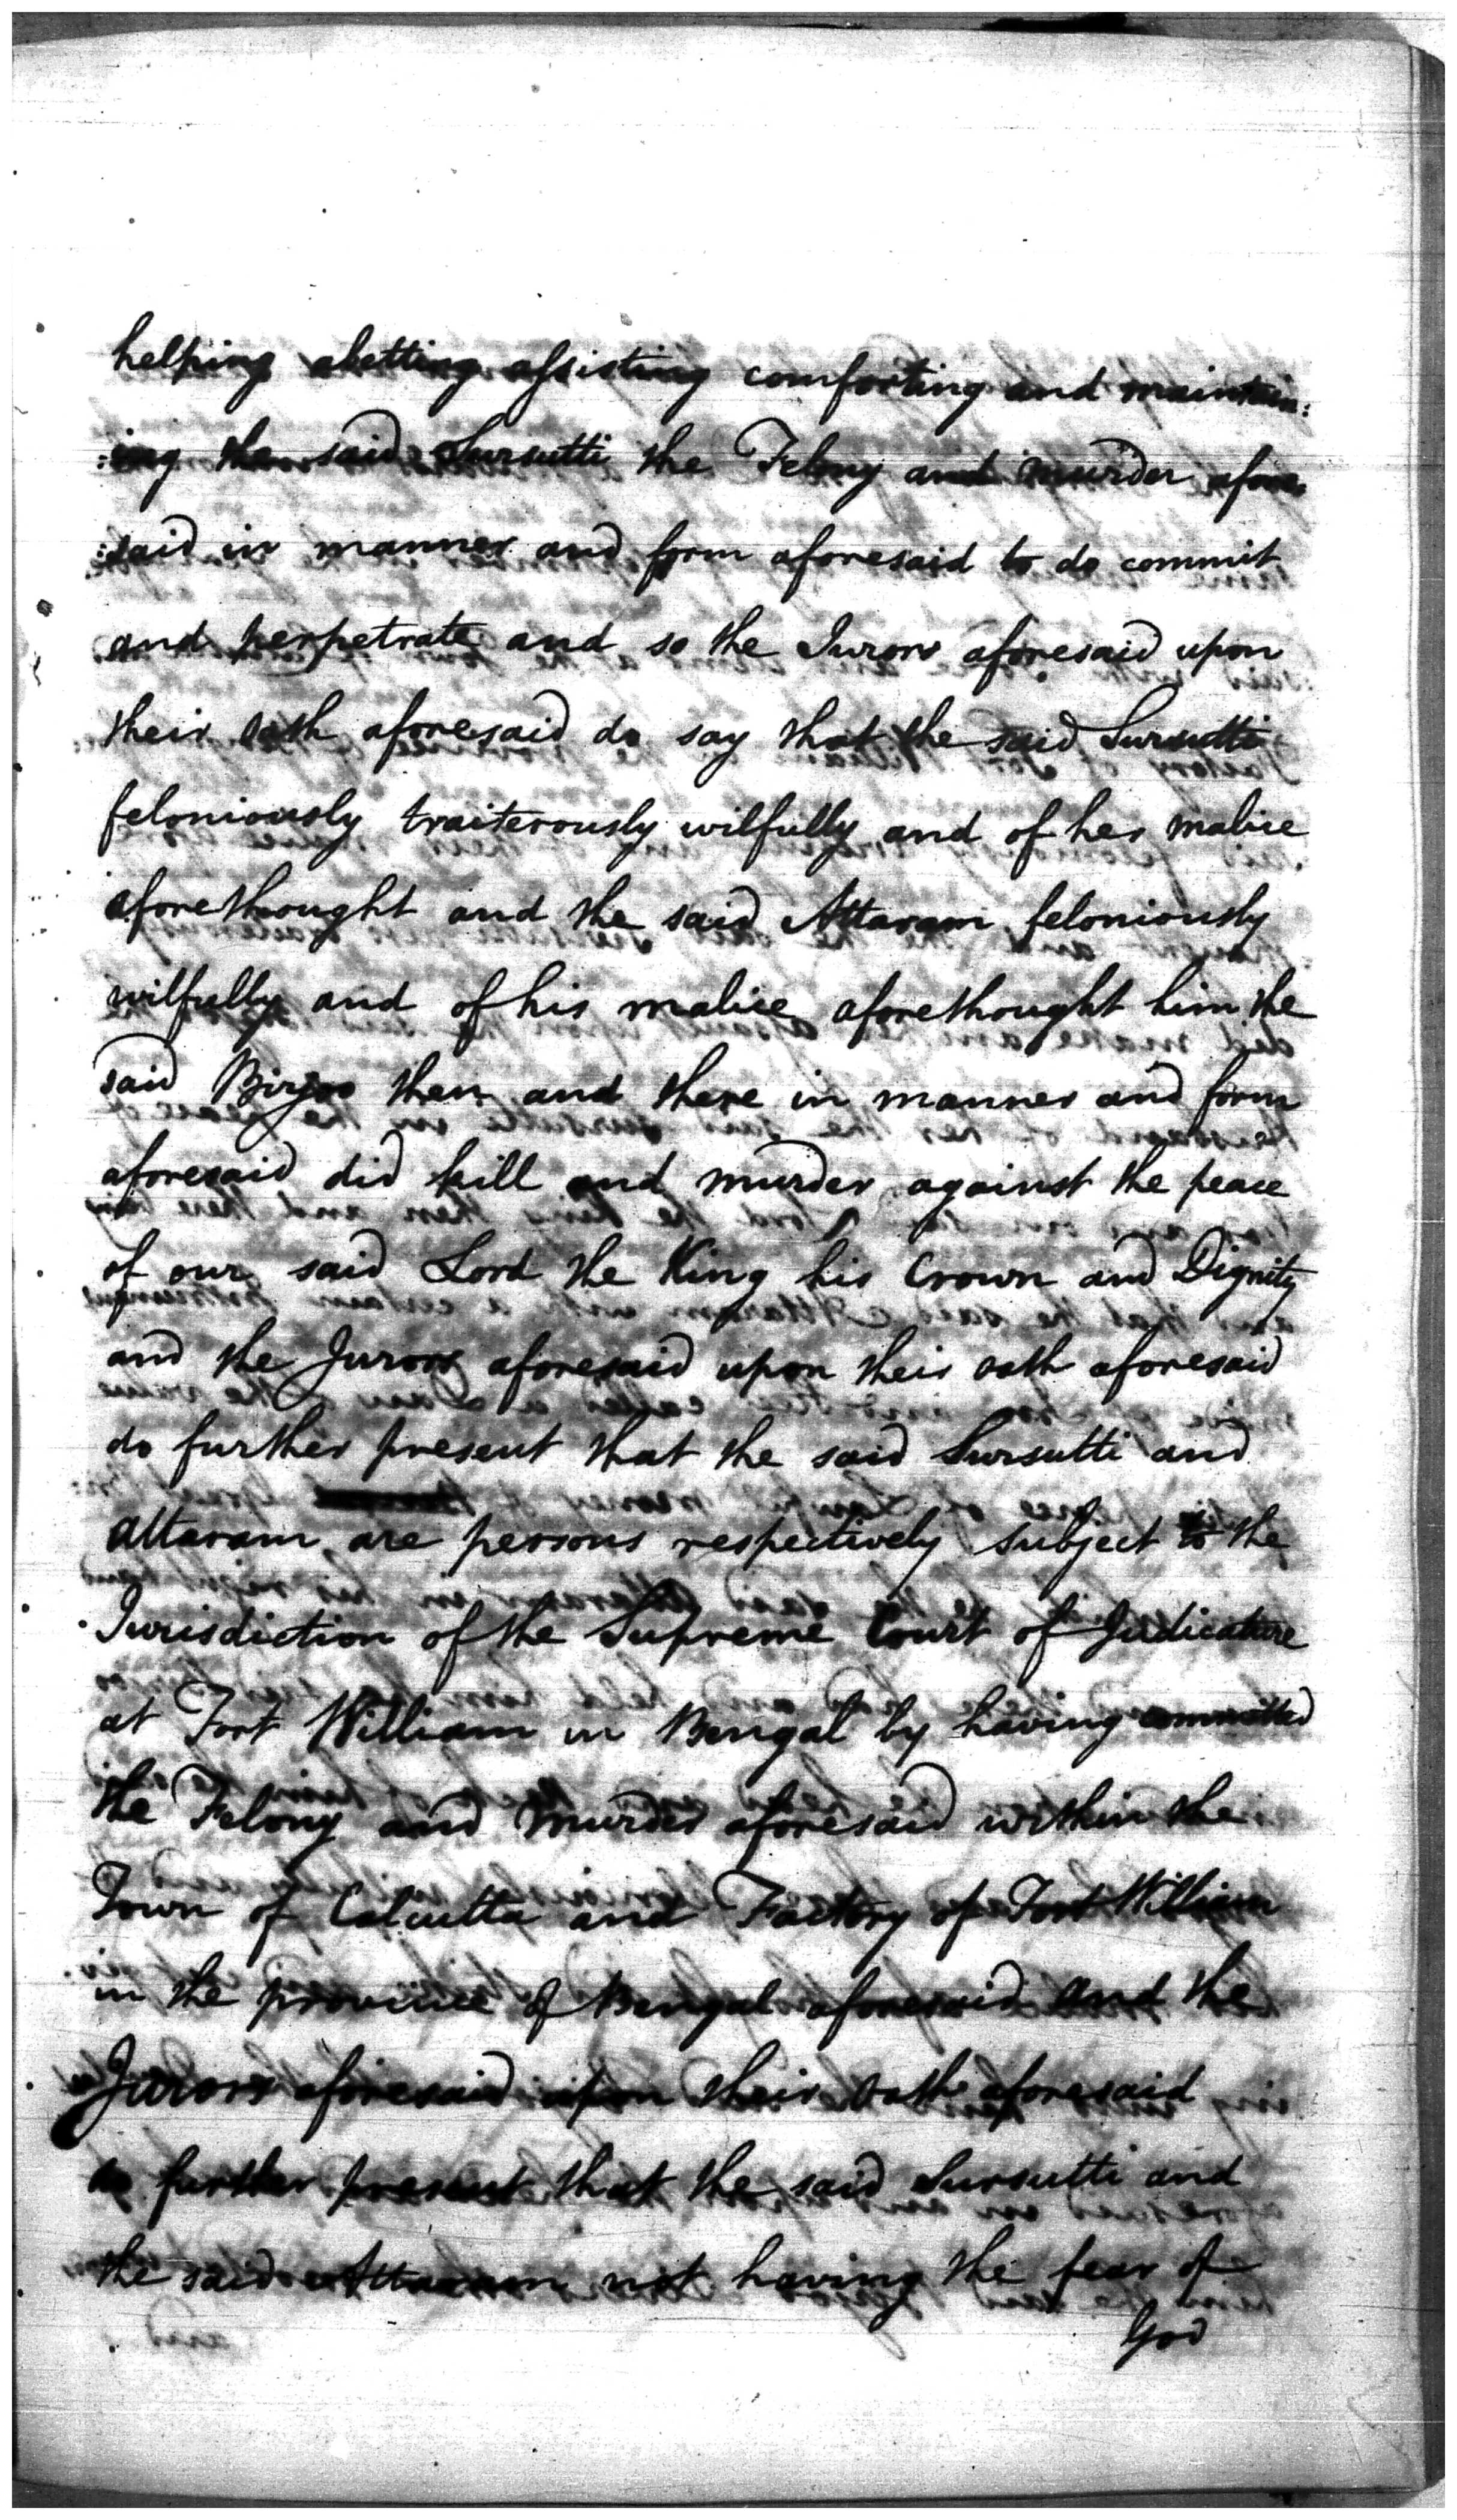 helping abetting assisting comforting and maintain:
:ing the said Sursutti the Felony and murder afore
:said in manner and form aforesaid to do commit
and perpetrate and so the Jurors aforesaid upon
their oath aforesaid do say that the said Sursutti
feloniously traiterously wilfully and of her malice
aforethought and the said Attaram feloniously
wilfully and of his malice aforethought him the
said Birjoo then and there in manner and form
aforesaid did kill and murder against the peace
of our said Lord the King his Crown and Dignity
and the Jurors aforesaid upon their oath aforesaid
do further present that the said Sursutti and
Attaram are persons respectively subject to the
Jurisdiction of the Supreme Court of Judicature
at Fort William in Bengal by having committed
the Felony and Murder aforesaid within the
Town of Calcutta and Factory of Fort William
in the province of Bengal aforesaid and the
Jurors aforesaid upon their oath aforesaid
do further present that the said Sursutti and
the said Attaram not having the fear of
God